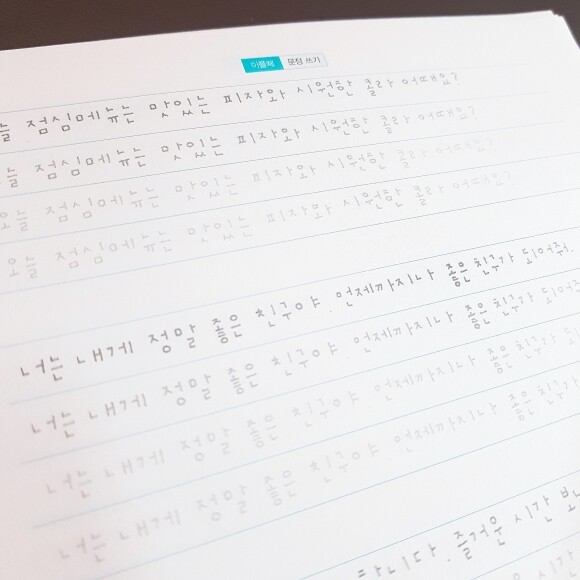 이플체 문장 쓰기
늘 점심메뉴는 맛있는 피자와 시원한 콜라 어때요?
늘 점심메뉴는 맛있는 피자와 시원한 콜라 어때요?
오늘 점심메뉴는 맛있는 피자와 시원한 콜라 어때요?
오늘 점심메뉴는 맛있는 피자와 시원한 콜라 어때요?
너는 내게 정말 좋은 친구야. 언제까지나 좋은 친구가 되어줘.
너는 내게 정말 좋은 친구야. 언제까지나 좋은 친구가 되어주
너는 내게 정말 좋은 친구야. 언제까지나 좋은 친구가 되어
너는 내게 정말 좋은 친구야. 언제까지나 좋은 친구가
즐거운 시간